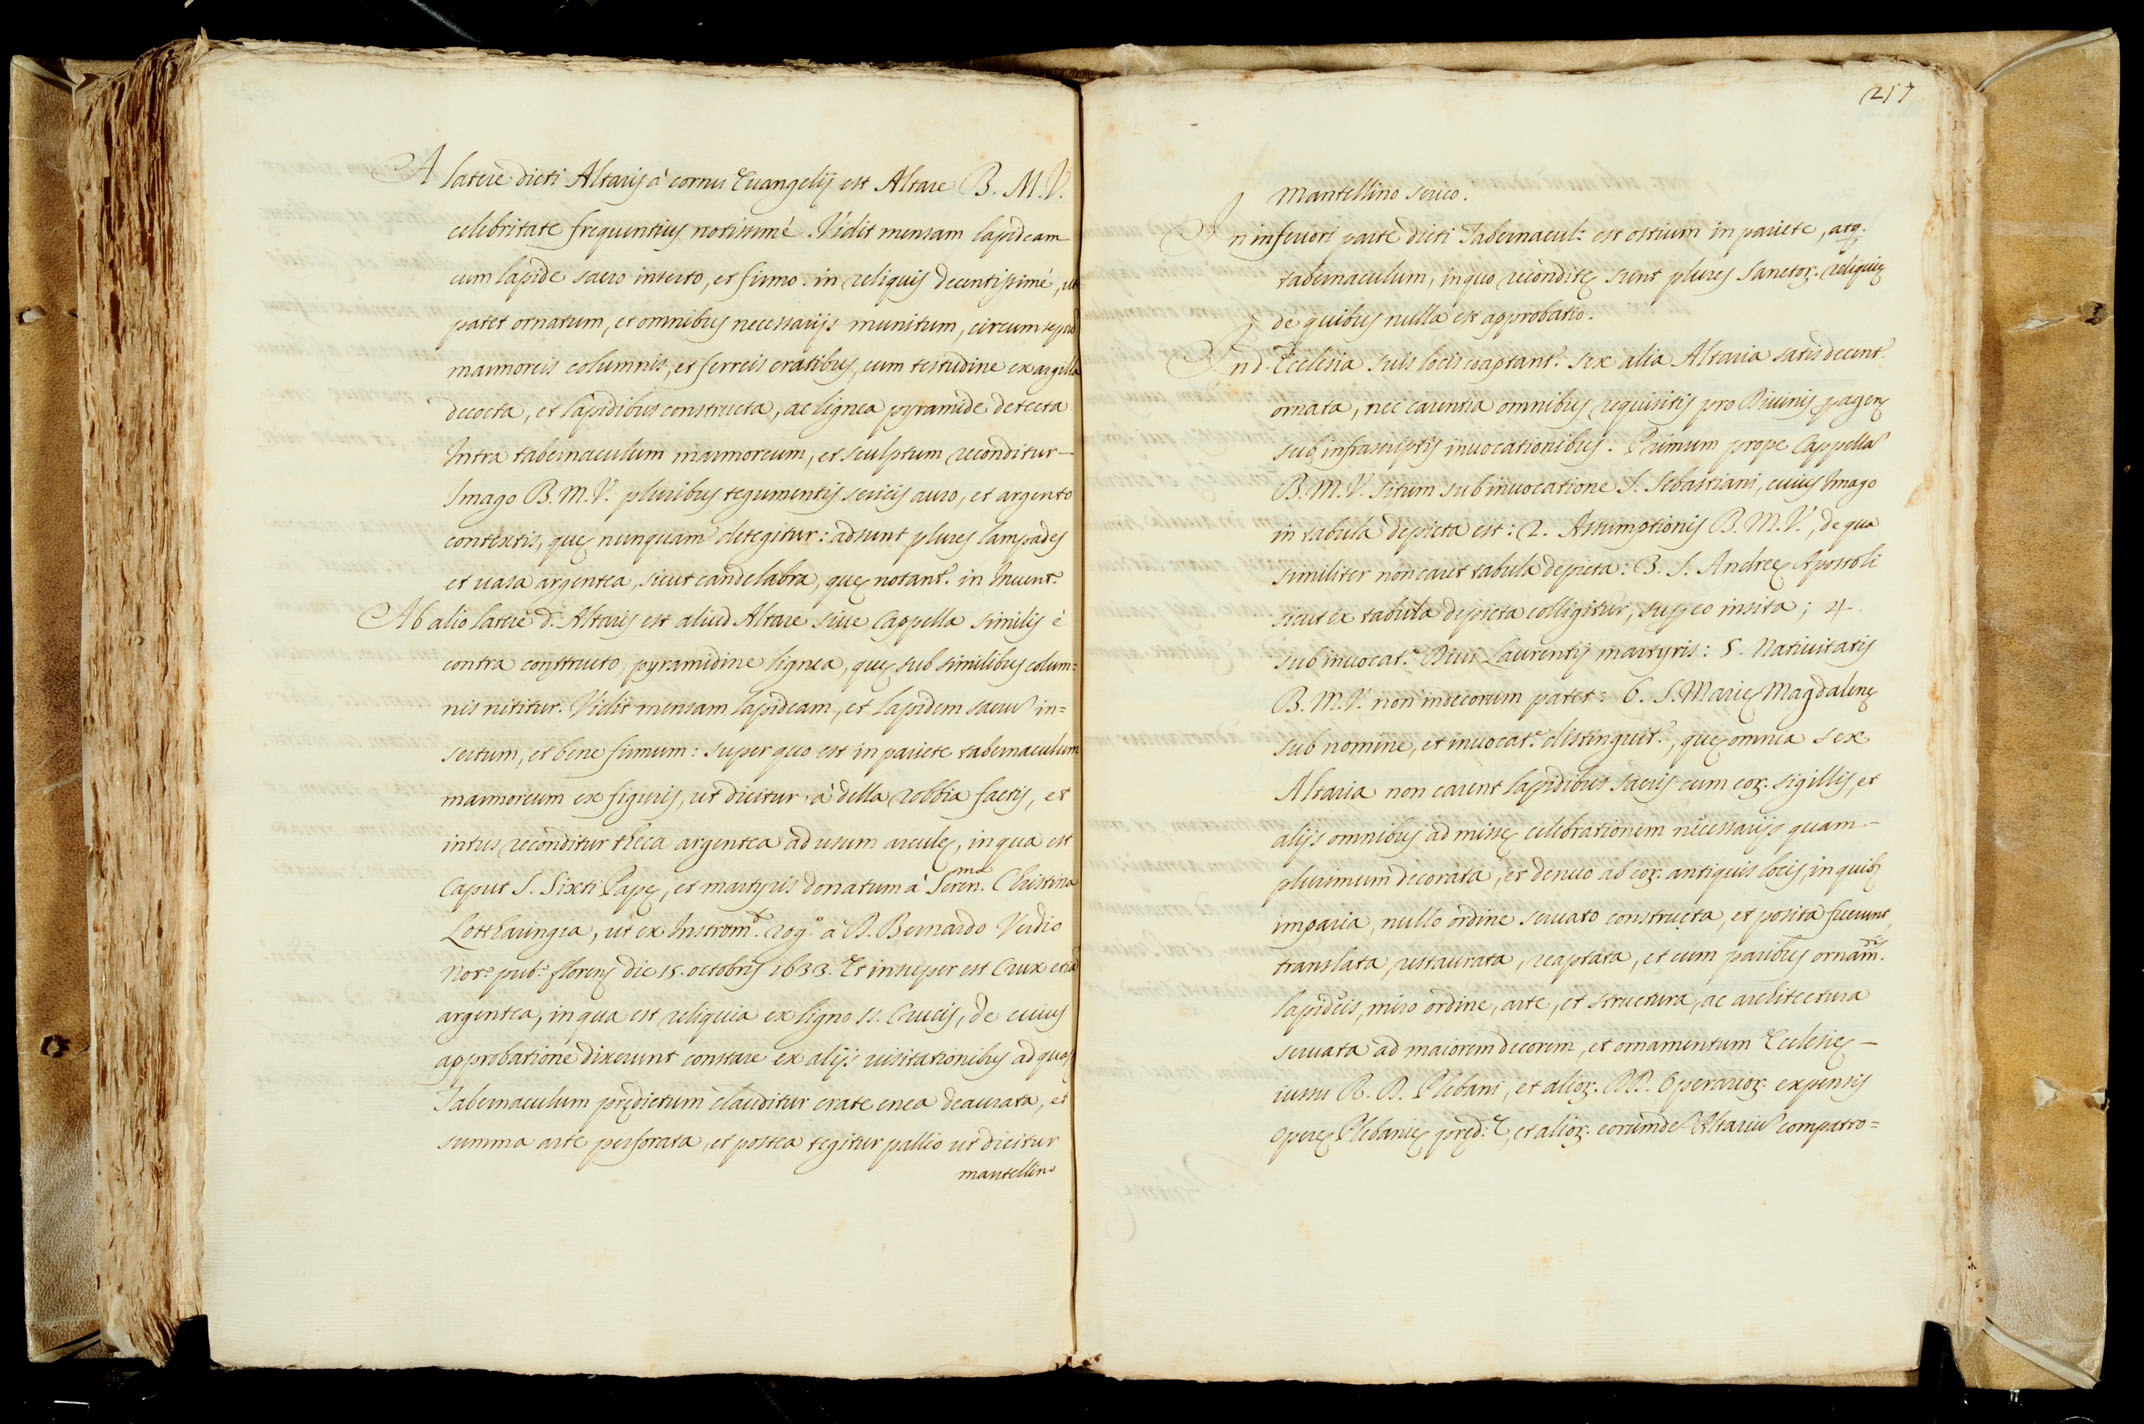 A latere dicti Altaris à cornu Evangelij est Altare B. M. V.
celebritate frequentius notissimè. Vidit mensam lapideam
cum lapide sacro inserto, et firmo: in reliquis decentissimè, ut
patet ornatum, et omnibus necessarijs munitum, circumseptu
marmoreis columnis, et ferreis cratibus, cum testudine ex argilla
decocta, et lapidibus constructa, ac lignea pyramide detecta
Intra tabernaculum marmoreum, et sculptum reconditur
Imago B. M. V. pluribus tegumentis sericis auro, et argento
contextis, quę nunquam detegitur: adsunt plures lampades
et uasa argentea, sicut candelabra, quę notant.r in Inuent.o
Ab alio latere d.i Altaris est aliud Altare siue Cappella similis è
contra constructo, pyramidine lignea, quę sub similibus colum=
nis nititur. Vidit mensam lapideam, et lapidem sacrũ in=
sertum, et bene firmum: super quo est in pariete tabernaculum
marmoreum ex figuris, ut dicitur, à della robbia factis, et
intus reconditur theca argentea ad usum arculę, in qua est
Caput S. Sixti Papę, et martyris donatum à Seren.ma Christina
Lottharingia, ut ex Instrom.to rog.o à D. Bernardo Verdio
Not.o pub.o floren; die 15. octobris 1633. Et insuper est Crux etiã
argentea, in qua est reliquia ex ligno SS. Crucis, de cuius
approbatione dixerunt constare ex alijs uisitationibus ad quas
Tabernaculum prędictum clauditur crate enea deaurata, et
summa arte perforata, et postea tegitur pallio ut dicitur
mantellino
217
Mantellino serico.
In inferiori parte dicti Tabernacul: est ostium in pariete, atq.
tabernaculum, in quo reconditę sunt plures Sanctor. reliquię
de quibus nulla est approbatio.
In d. Ecclesia suis locis coaptant.r sex alia Altaria satis decent.r
ornata, nec carentia omnibus requisitis pro Diuinis pagen;
sub infrascriptis inuocationibus. Primum prope Cappellã
B. M. V. situm sub inuocatione S. Sebastiani, cuius Imago
in tabula depicta est: 2. Assumptionis B. M. V., de qua
similiter non caret tabula depicta: 3. S. Andreę Apostoli
sicut ex tabula depicta colligitur, sup eo insita; 4.
sub inuocat.e Diui Laurentij martyris: 5. Natiuitatis
B. M. V. non indecorum patet: 6. S. Marię Magdalenę
sub nomine, et inuocat.e distinguit.r, quę omnia sex
Altaria non carent lapidibus sacris cum eor. sigillis, et
alijs omnibus ad missę celebrationem necessarijs quam
plurimum decorata, et denuo ab eor. antiquis locis, in quib;
imparia, nullo ordine seruato constructa, et posita fuerunt,
translata, restaurata, reaptata, et cum paribus ornam.tis
lapideis, miro ordine, arte, et structura, ac architectura
seruata ad maiorem decorem, et ornamentum Ecclesię
iussu R. D. Plebani, et alior. DD. Operarior. expensis
operę Plebanię pręd:ę, et alior. eorundẽ Altariũ compatro=